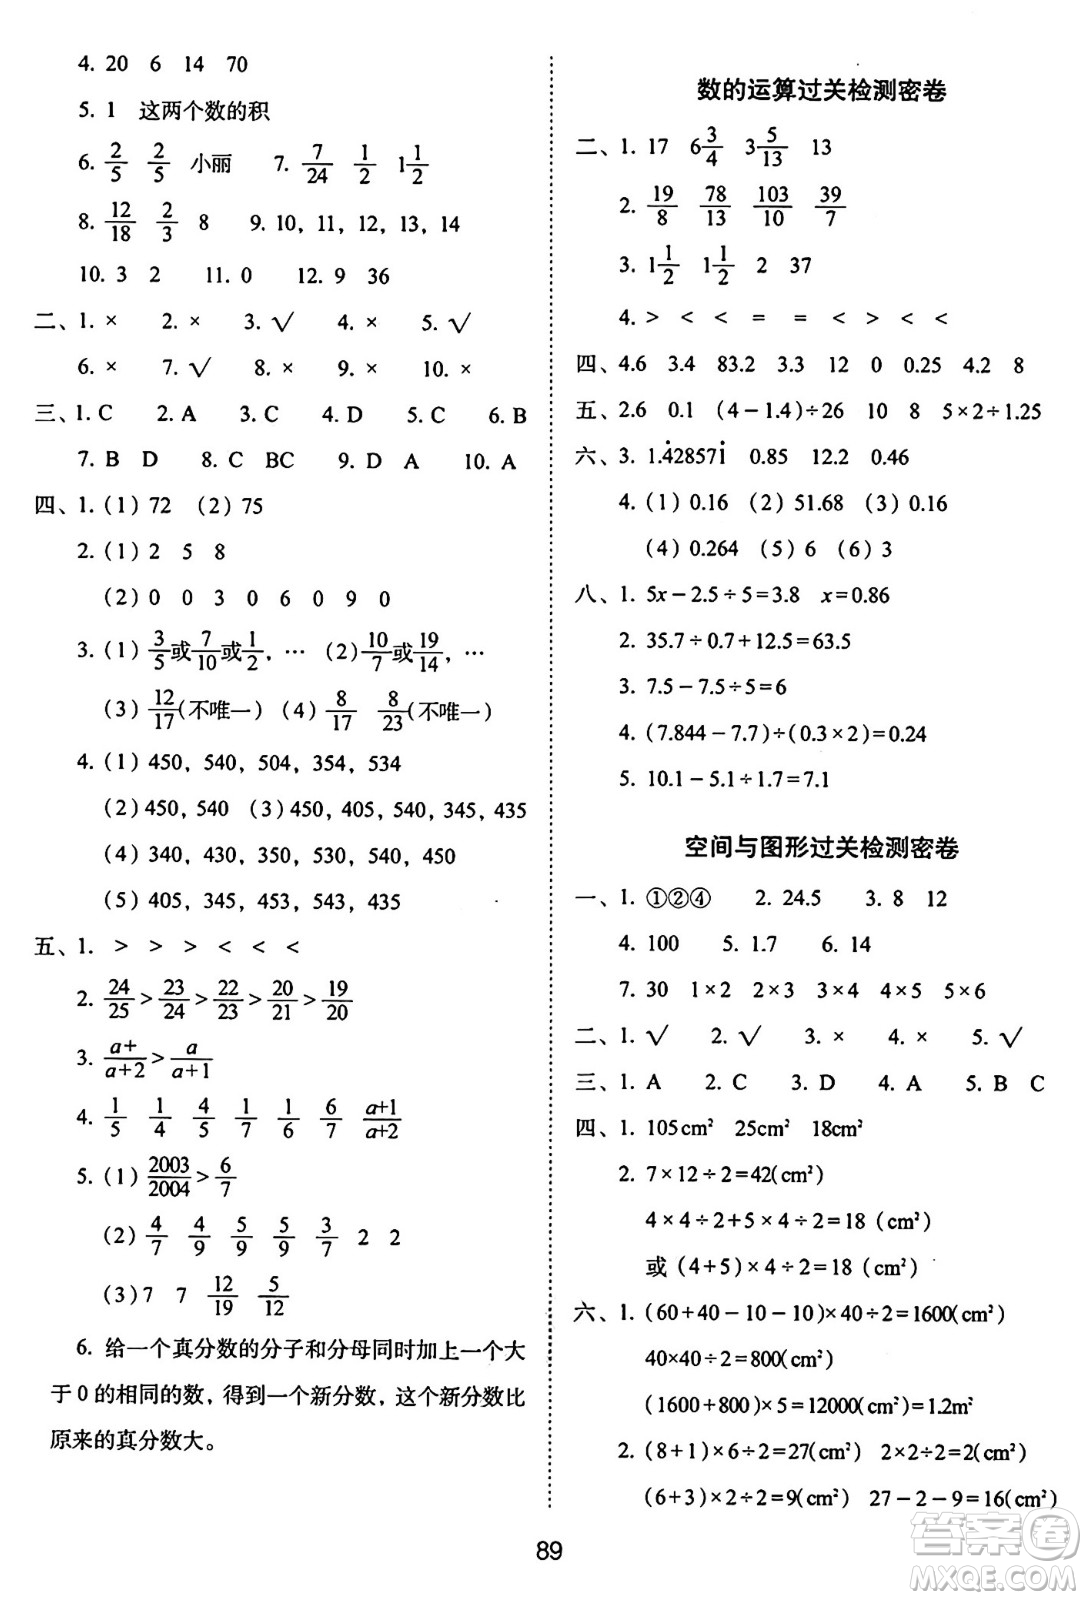 4. 20 6 14 70
5. 1 这两个数的积
6. 2/5 2/5 小丽 7. 7/24 1/2 1 1/2
8. 12/18 2/3 8 9. 10，11，12，13，14
10. 3 2 11. 0 12. 9 36
二、1. × 2. × 3. √ 4. × 5. √
6. × 7. √ 8. × 9. × 10. ×
三、1. C 2. A 3. C 4. D 5. C 6. B
7. B D 8. C BC 9. D A 10. A
四、1. (1) 72 (2) 75
2. (1) 2 5 8
(2) 0 0 3 0 6 0 9 0
3. (1) 3/5或7/10或1/2，… (2) 10/7或19/14，…
(3) 12/17(不唯一) (4) 8/17 8/23(不唯一)
4. (1) 450，540，504，354，534
(2) 450，540 (3) 450，405，540，345，435
(4) 340，430，350，530，540，450
(5) 405，345，453，543，435
五、1. > > > < < <
2. 24/25>23/24>22/23>20/21>19/20
3. a+/a+2>a/a+1
4. 1/5 1/4 4/5 1/7 1/6 6/7 a+1/a+2
5. (1) 2003/2004>6/7
(2) 4/7 4/9 5/9 5/9 3/7 2 2
(3) 7 7 12/19 5/12
6. 给一个真分数的分子和分母同时加上一个大
于0的相同的数，得到一个新分数，这个新分数比
原来的真分数大。
数的运算过关检测密卷
二、1. 17 6 3/4 3 5/13 13
2. 19/8 78/13 103/10 39/7
3. 1 1/2 1 1/2 2 37
4. > < < = = < > < <
四、4.6 3.4 83.2 3.3 12 0 0.25 4.2 8
五、2.6 0.1 (4-1.4)÷26 10 8 5×2÷1.25
六、3. 1.4̇2857i̇ 0.85 12.2 0.46
4. (1) 0.16 (2) 51.68 (3) 0.16
(4) 0.264 (5) 6 (6) 3
八、1. 5x-2.5÷5=3.8 x=0.86
2. 35.7÷0.7+12.5=63.5
3. 7.5-7.5÷5=6
4. (7.844-7.7)÷(0.3×2)=0.24
5. 10.1-5.1÷1.7=7.1
空间与图形过关检测密卷
一、1. ①②④ 2. 24.5 3. 8 12
4. 100 5. 1.7 6. 14
7. 30 1×2 2×3 3×4 4×5 5×6
二、1. √ 2. √ 3. × 4. × 5. √
三、1. A 2. C 3. D 4. A 5. B C
四、1. 105cm² 25cm² 18cm²
2. 7×12÷2=42(cm²)
4×4÷2+5×4÷2=18 (cm²)
或 (4+5)×4÷2=18 (cm²)
六、1. (60+40-10-10)×40÷2=1600(cm²)
40×40÷2=800(cm²)
(1600+800)×5=12000(cm²)=1.2m²
2. (8+1)×6÷2=27(cm²) 2×2÷2=2(cm²)
(6+3)×2÷2=9(cm²) 27-2-9=16(cm²)
89
答案圈
MXQE.COM